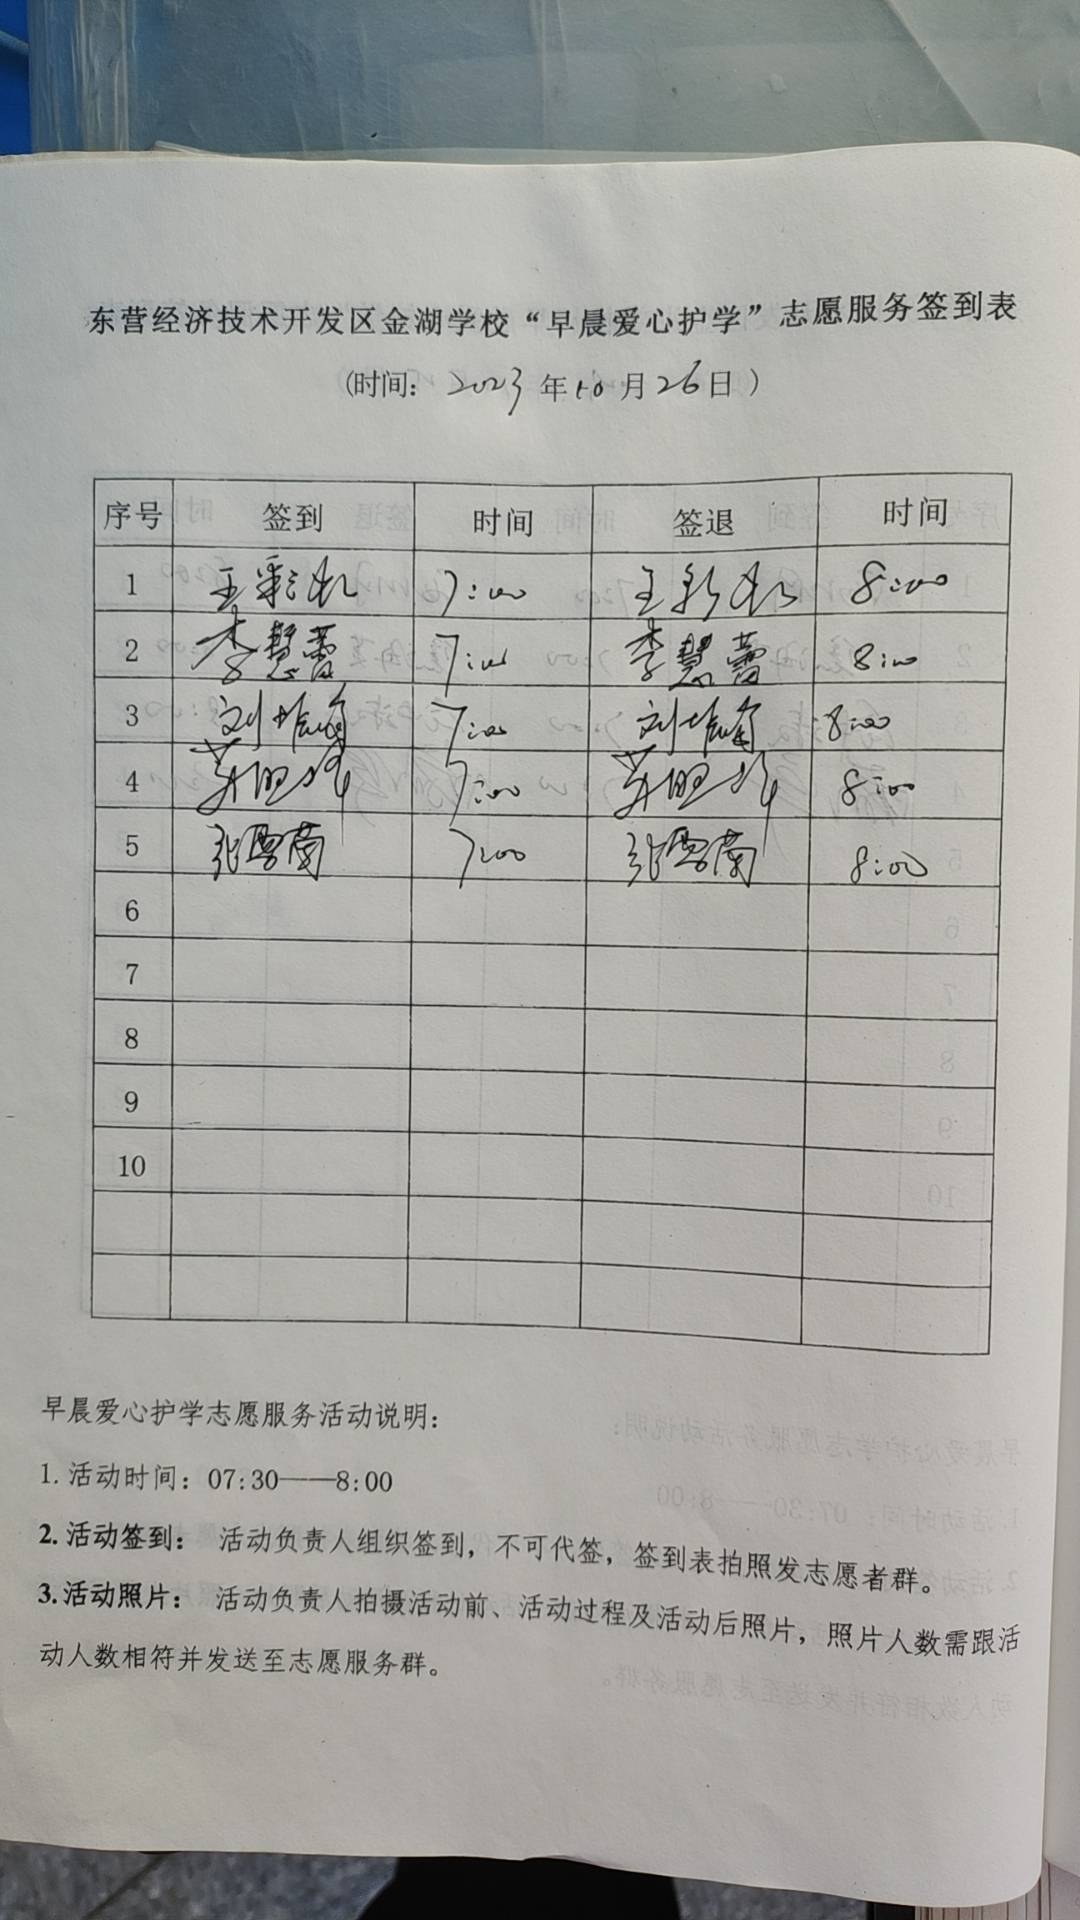 东营经济技术开发区金湖学校“早晨爱心护学”志愿服务签到表
(时间: 2023年10月26日)
序号 签到 时间 签退 时间
1 王彩虹 7:00 王彩虹 8:00
2 李慧蕾 7:00 李慧蕾 8:00
3 刘 7:00 刘 8:00
4 7:00 8:00
5 张雪菊 7:00 张雪菊 8:00
6
7
8
9
10
早晨爱心护学志愿服务活动说明:
1.活动时间: 07:30——8:00
2.活动签到: 活动负责人组织签到，不可代签，签到表拍照发志愿者群。
3.活动照片: 活动负责人拍摄活动前、活动过程及活动后照片，照片人数需跟活
动人数相符并发送至志愿服务群。